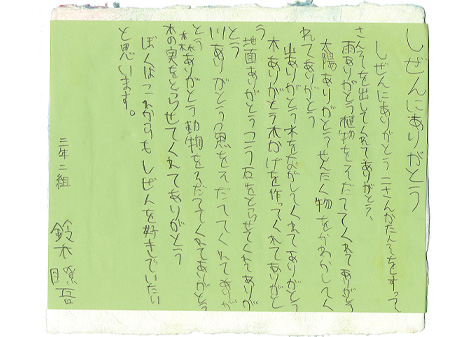 しぜんにありがとう
しぜんにありがとう二さんかたんそをすって
さんそを出してくれてありがとう、
雨ありがとう植物をそだててくれてありがとう
太陽ありがとうせんたく物をかわかしてく
れてありがとう
山ありがとう水をながしてくれてありがとう
木ありがとう木かげを作ってくれてありがと
う
地面ありがとう石をとらせてくれてありが
とう
川ありがとう魚をそだててくれてありが
とう
森ありがとう動物をそだててくれてありがとう
木の実をとらせてくれてありがとう
ぼくはこれからもしぜんを好きでいたい
と思います。
三年二組
鈴木瞭吾